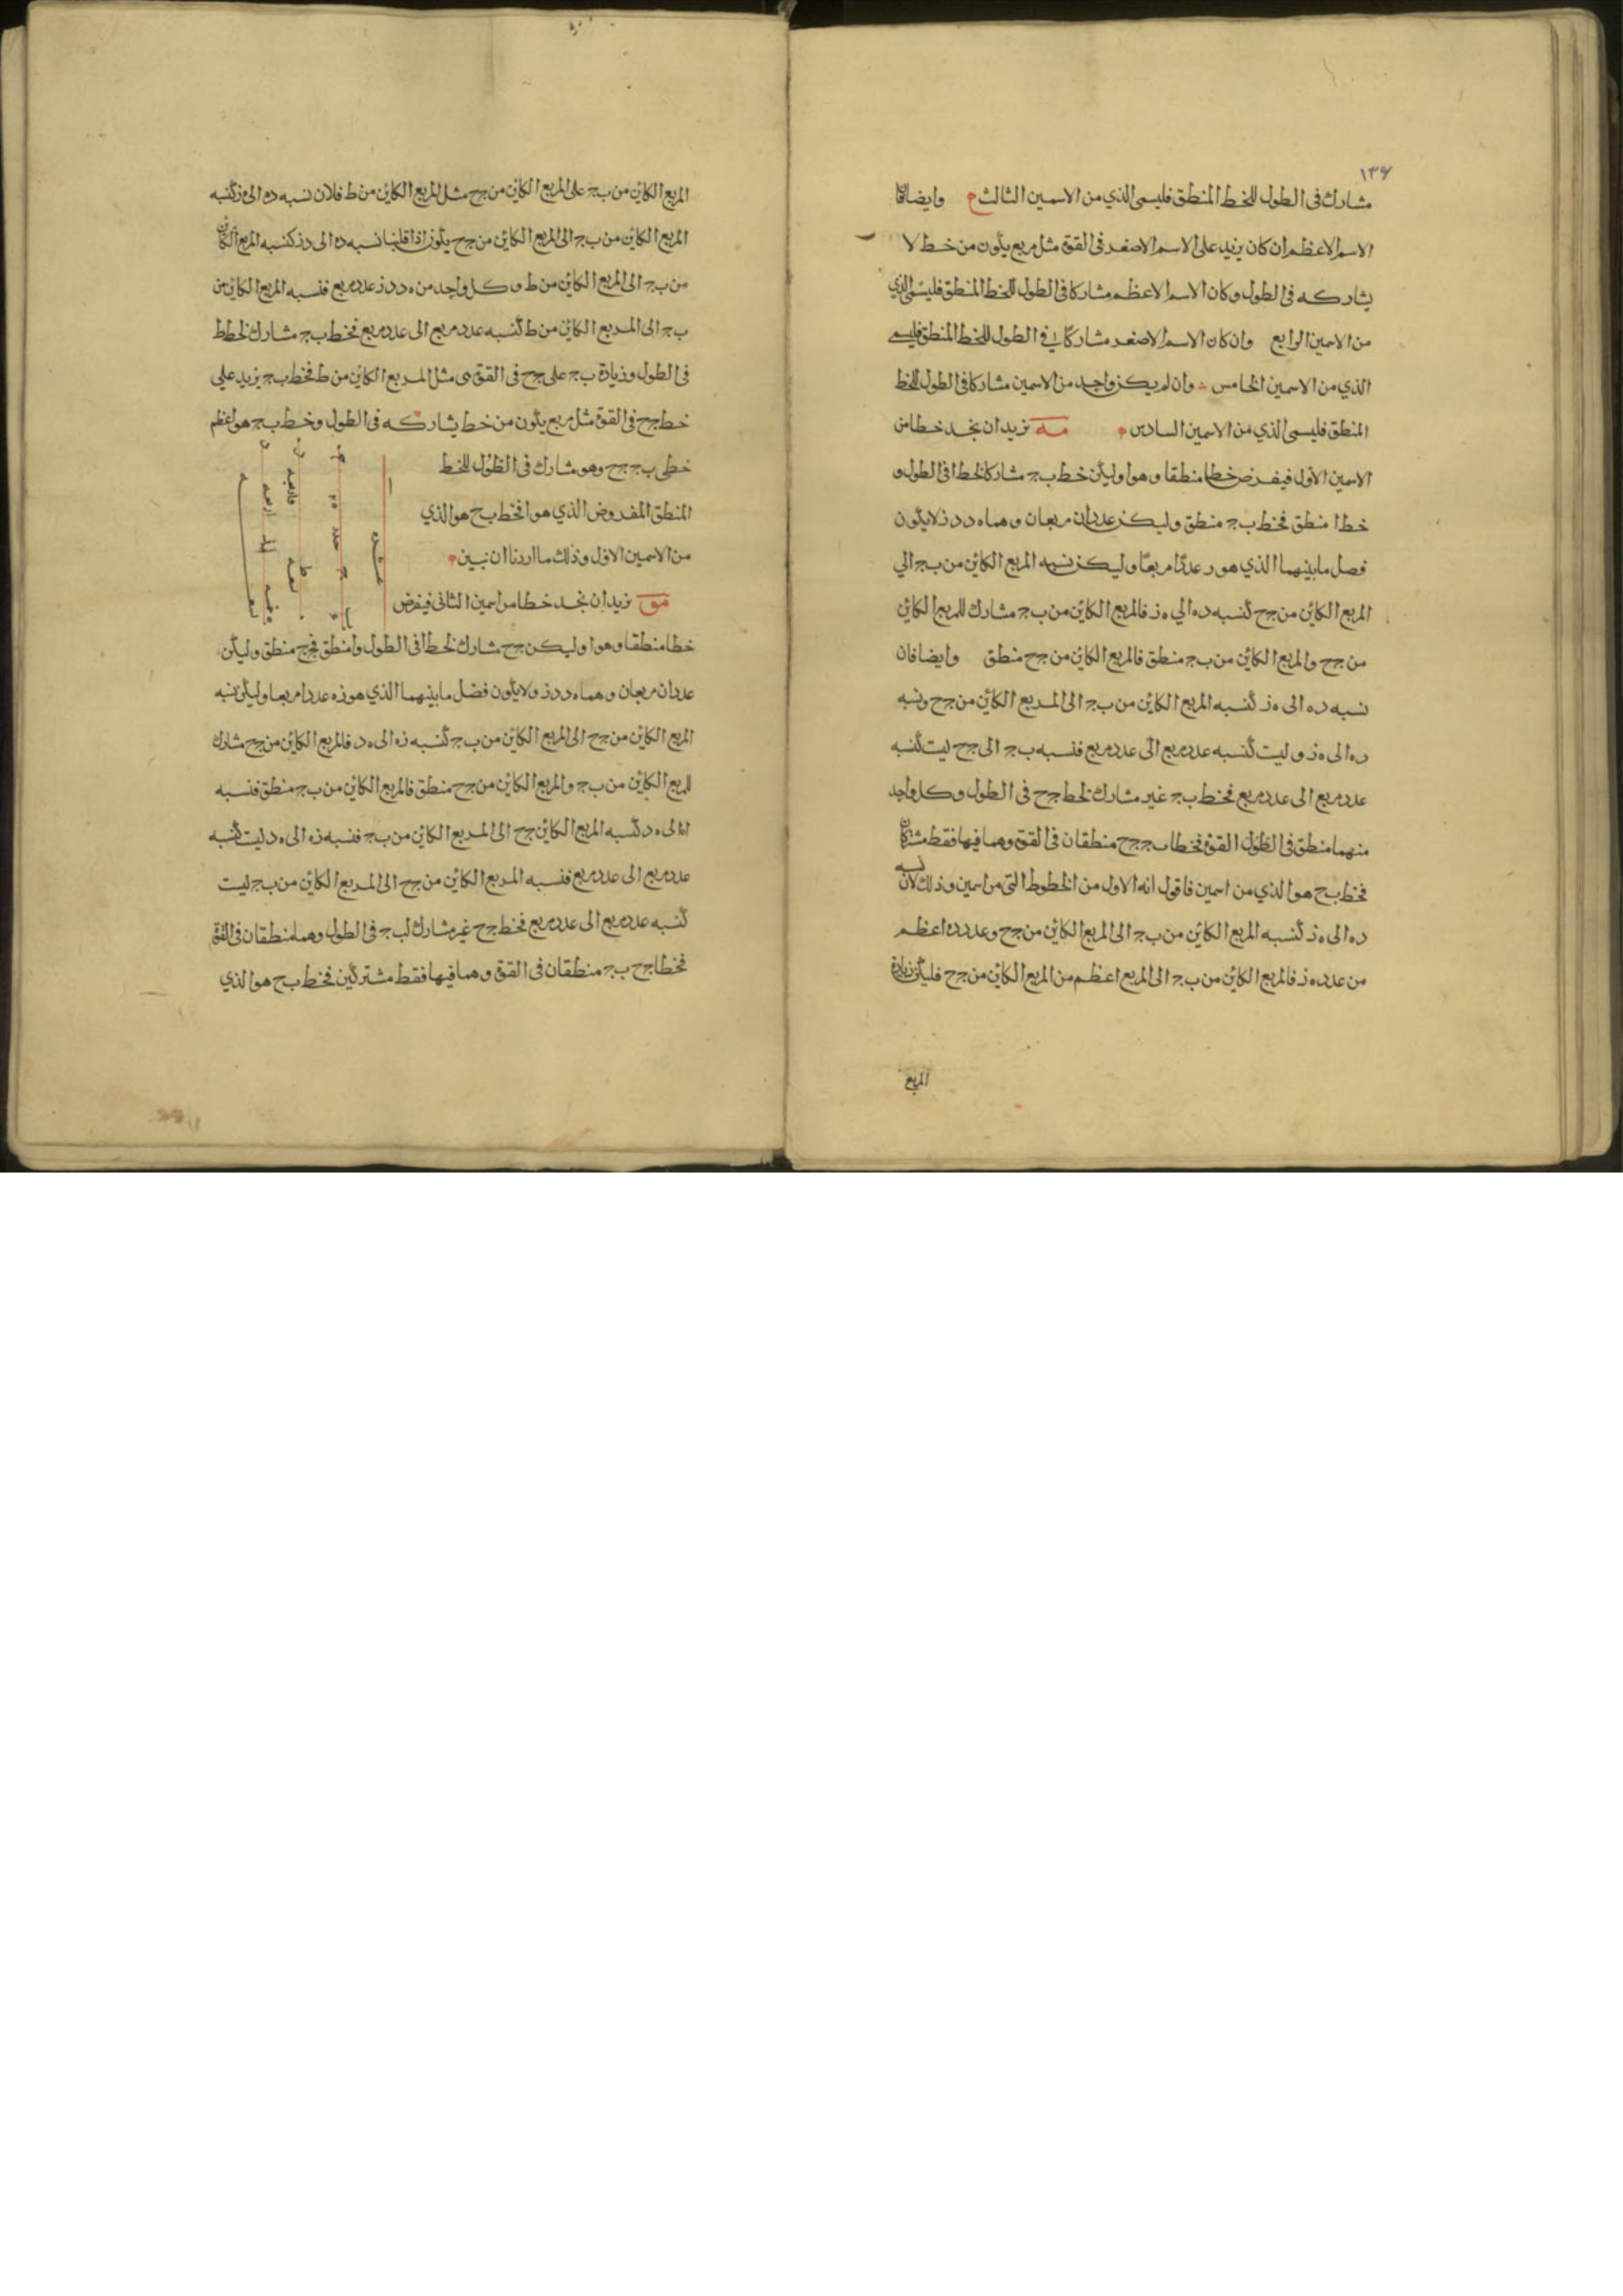 ١٣۶
مشارك فى الطول للخط المنطق فليسمى الذي من الاسمين الثالث وايضا فان
الاسم الاعظم ان كان يزيد على الاسم الاصغر فى القوة مثل مربع يكون من خط لا
يشاركه فى الطول وكان الاسم الاعظم مشاركا فى الطول للخط المنطق فليسمى الذي
من الاسمين الرابع وان كان الاسم الاصغر مشاركا فى الطول للخط المنطق فليسمى
الذي من الاسمين الخامس وان لم يكن واحد من الاسمين مشاركا فى الطول للخط
المنطق فليسمى الذي من الاسمين السادس مه نريد ان نجد خطا من
الاسمين الاول فيفرض خطا منطقا وهو ا وليكن خط ب ج مشاركا لخط ا فى الطول و
خط ا منطق فخط ب ج منطق وليكن عددان مربعان وهما ه د د ز لا يكون
فصل ما بينهما الذي هو ر عددا مربعا وليكن نسبه المربع الكاين من ب ج الي
المربع الكاين من ج ح كنسبه د ه الي ه ز فالمربع الكاين من ب ج مشارك للمربع الكاين
من ج ح والمربع الكاين من ب ج منطق فالمربع الكاين من ج ح منطق وايضا فان
نسبه د ه الى ه ز كنسبه المربع الكاين من ب ج الى المربع الكاين من ج ح ونسبه
د ه الى ه ز و ليست كنسبه عدد مربع الى عدد مربع فنسبه ب ج الى ج ح ليست كنسبه
عدد مربع الى عدد مربع فخط ب ج غير مشارك لخط ج ح فى الطول وكل واحد
منهما منطق فى الطول القوة فخطا ب ج ج ح منطقان فى القوة وهما فيها فقط مشتركان
فخط ب ح هو الذي من اسمين فاقول انه الاول من الخطوط التى من اسمين وذلك لان نسبه
د ه الى ه ز كنسبه المربع الكاين من ب ج الى المربع الكاين من ج ح وعدد د ه اعظم
من عدد ه ز فالمربع الكاين من ب ج الى المربع اعظم من المربع الكاين من ج ح فليكن زيادة
المربع
المربع الكاين من ب ج على المربع الكاين من ج ح مثل المربع الكاين من ط فلان نسبه د ه الى ه ز كنسبه
المربع الكاين من ب ج الى المربع الكاين من ج ح يكون اذا قلبنا نسبه د ه الى د ز كنسبه المربع الكاين
من ب ج الى المربع الكاين من ط و كل واحد من ه د د ز عدد مربع فنسبه المربع الكاين من
ب ج الى المربع الكاين من ط كنسبه عدد مربع الى عدد مربع فخط ب ج مشارك لخط ط
فى الطول وزيادة ب ج على ج ح فى القوة مثل المربع الكاين من ط فخط ب ج يزيد على
خط ج ح فى القوة مثل مربع يكون من خط يشاركه فى الطول وخط ب ج هو اعظم
خطى ب ج ج ح وهو مشارك فى الطول للخط
المنطق المفروض الذي هو ا فخط ب ح هو الذي
من الاسمين الاول وذلك ما اردنا ان نبين
مو نريد ان نجد خطا من اسمين الثانى فيفرض
خطا منطقا وهو ا وليكن ج ح مشارك لخط ا فى الطول وا منطق فج ح منطق وليكن
عددان مربعان وهما ه د د ز ولا يكون فضل ما بينهما الذي هو ز ه عددا مربعا وليكن نسبه
المربع الكاين من ج ح الى المربع الكاين من ب ج كنسبه ز ه الى ه د فالمربع الكاين من ج ح مشارك
للمربع الكاين من ب ج والمربع الكاين من ج ح منطق فالمربع الكاين من ب ج منطق فنسبه
الى ه د كنسبه المربع الكاين ج ح الى المربع الكاين من ب ج فنسبه ز ه الى ه د ليست كنسبه
عدد مربع الى عدد مربع فنسبه المربع الكاين من ج ح الى المربع الكاين من ب ج ليست
كنسبه عدد مربع الى عدد مربع فخط ج ح غير مشارك لب ج فى الطول وهما منطقان فى القوة
فخطا ج ح ب ج منطقان فى القوة وهما فيها فقط مشتركين فخط ب ح هو الذي